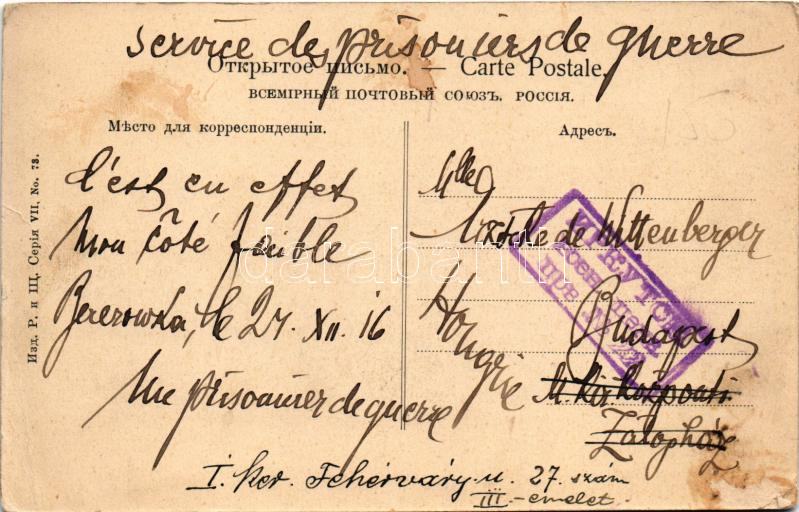 Service des prisonniers de guerre
Открытое письмо. — Carte Postale.
ВСЕМІРНЫЙ ПОЧТОВЫЙ СОЮЗЪ. РОССІЯ.
Мѣсто для корреспонденціи.
C'est en effet
Mon côté faible
Berezowka, le 27. XII. 16
Un prisonnier de guerre
Изд. Р. и Щ. Серія VII, No. 73.
Адресъ.
Mlle
de Wittenberger
Budapest
Hongrie
M. kir. központi
Zálogház
I. ker. Fehérváry u. 27. szám
III. emelet.
darabanth